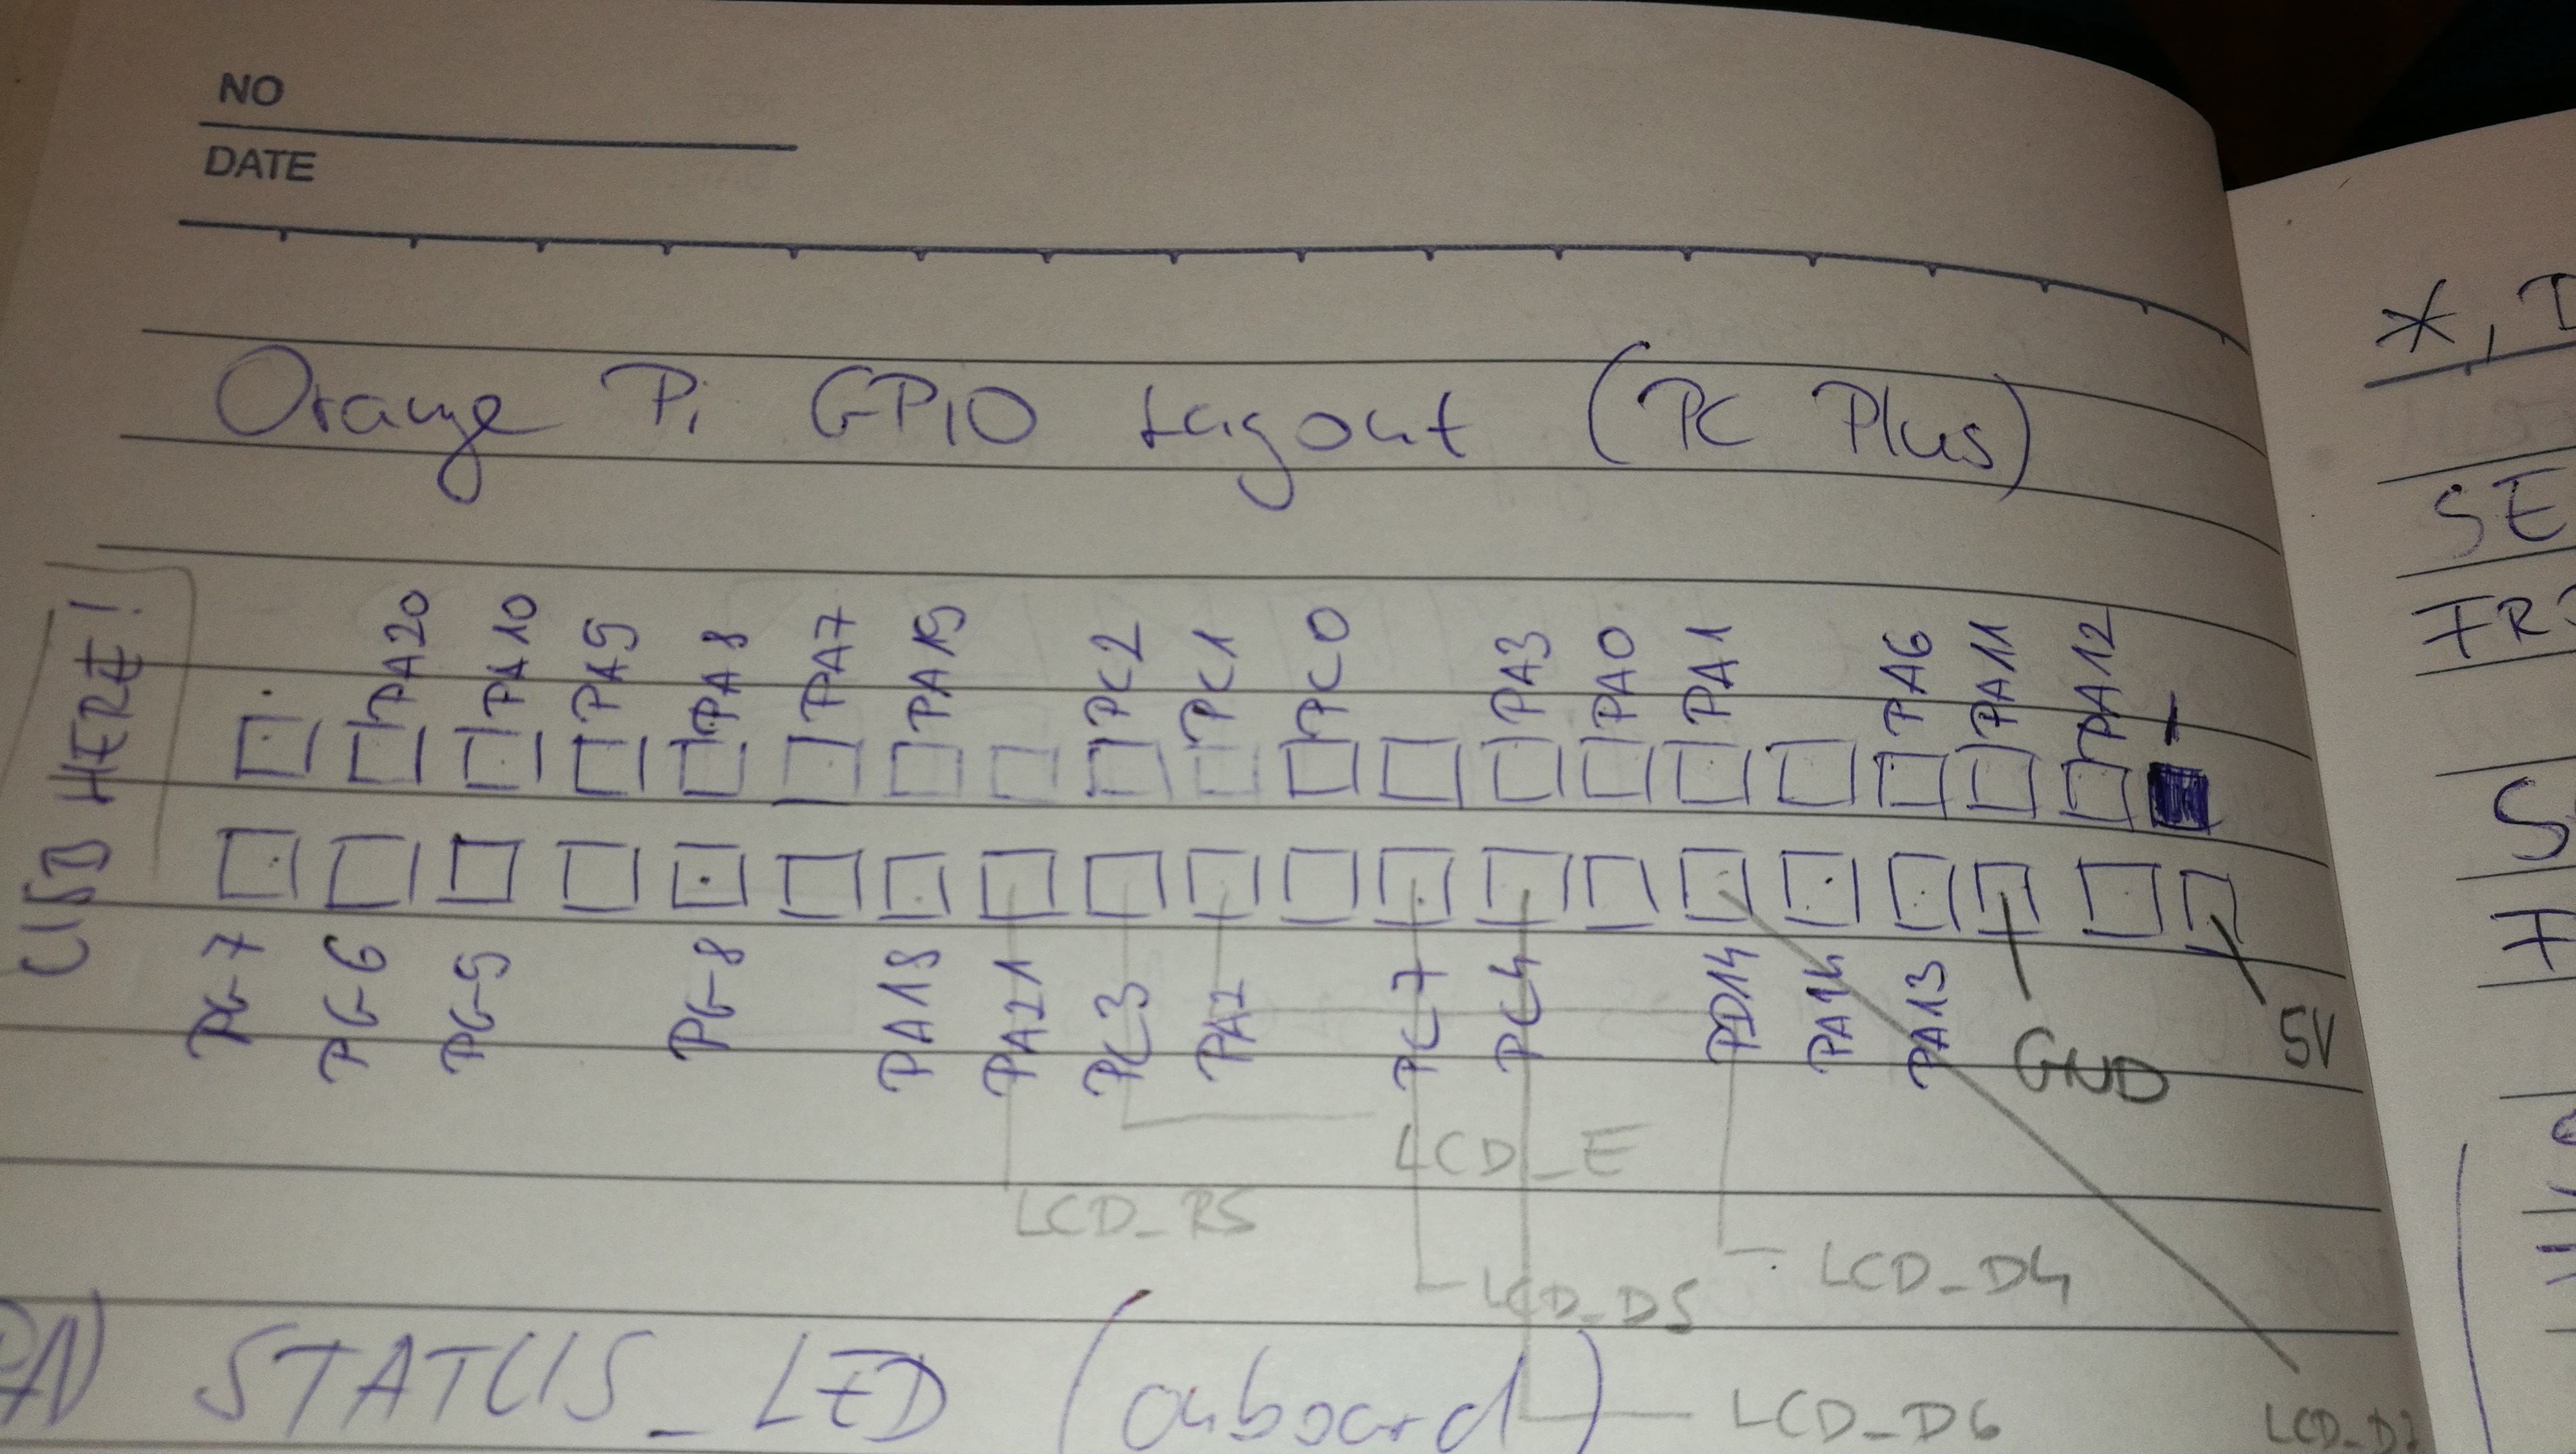 NO
DATE
Orange Pi GPIO Layout (PC Plus)
USB HERE!
PA20 PA10 PA9 PA8 PA7 PA19 PC2 PC1 PC0 PA3 PA0 PA1 PA6 PA11 PA12 1
PG7 PG6 PG9 PG8 PA18 PA21 PC3 PA2 PC7 PC4 PD14 PA14 PA13 GND 5V
LCD_E
LCD_RS
LCD_D4
LCD_D5
STATUS_LED (onboard)
LCD_D6
LCD_D7